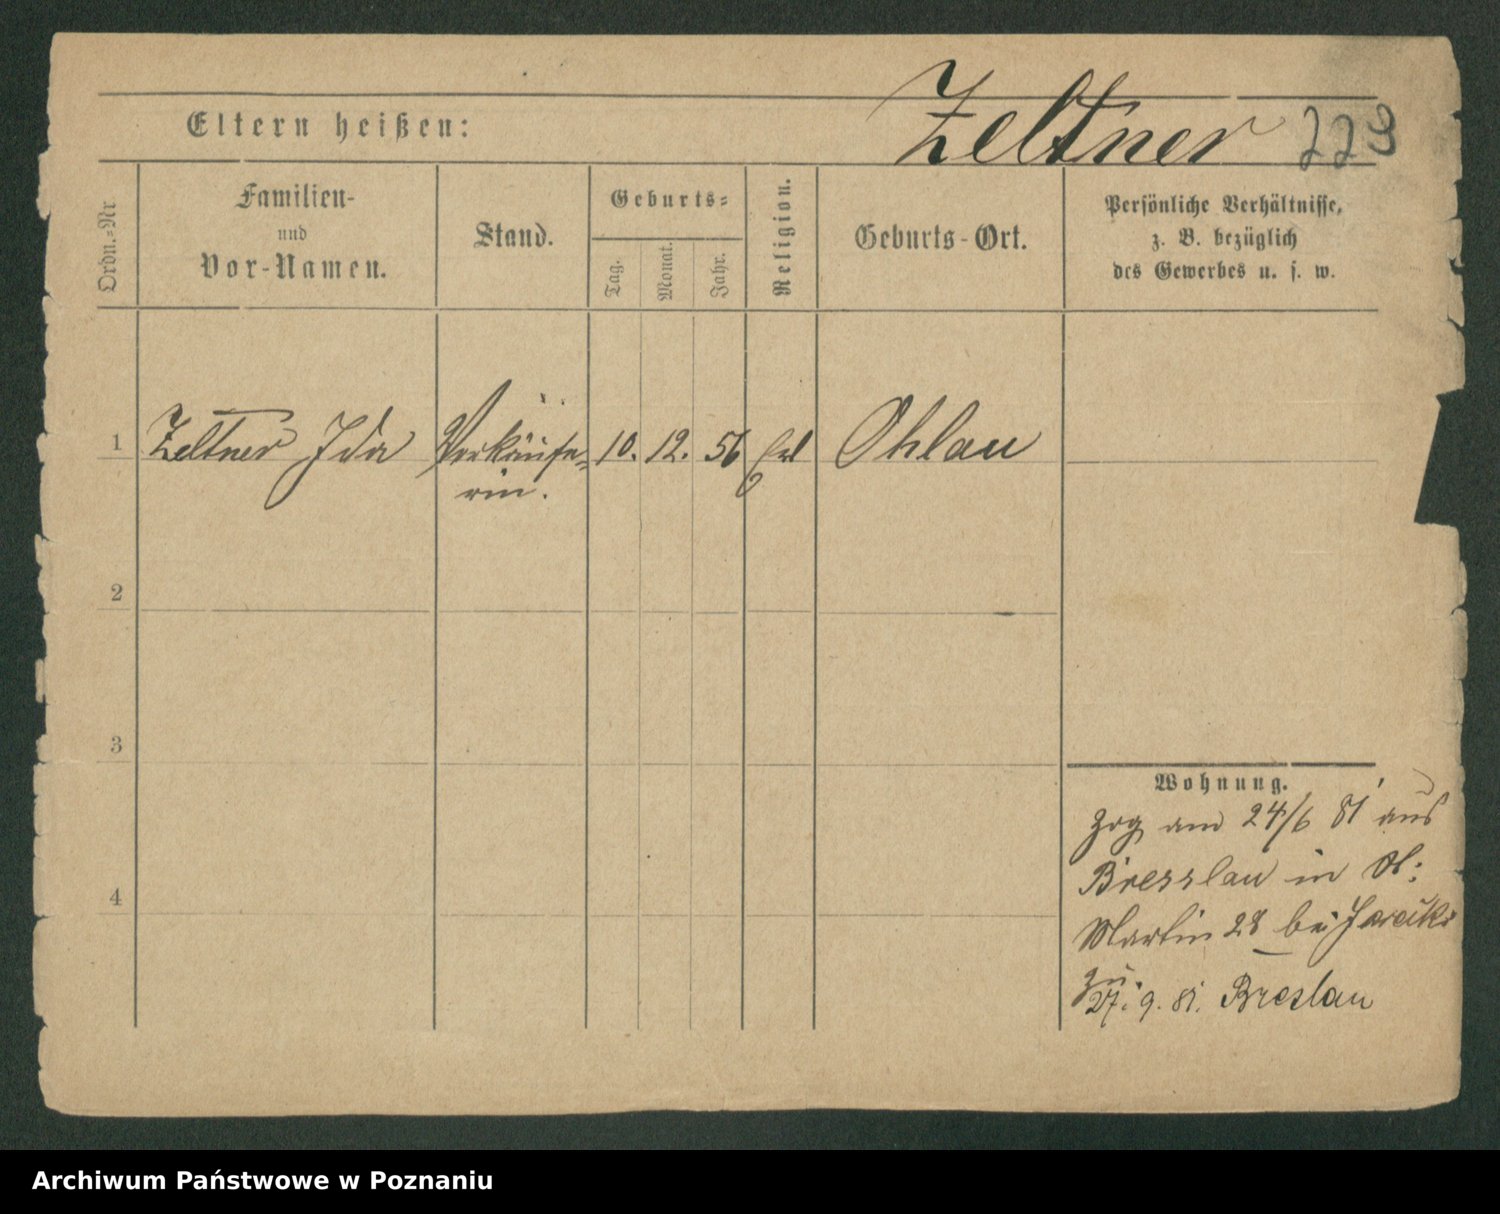 Zeltner 223
Eltern heißen:
Ordn.=Nr
Familien-
und
Vor-Namen.
Stand.
Geburts=
Tag.
Monat.
Jahr.
Religion.
Geburts-Ort.
Persönliche Verhältnisse,
z. B. bezüglich
des Gewerbes u. s. w.
1 Zeltner Ida Verkäufe= 10. 12. 56 Ohlau
rin.
2
3
4
Wohnung.
Zog am 24/6 81 aus
Bresslau in St:
Martin 28 bei
27. 9. 81. Breslau
Archiwum Państwowe w Poznaniu